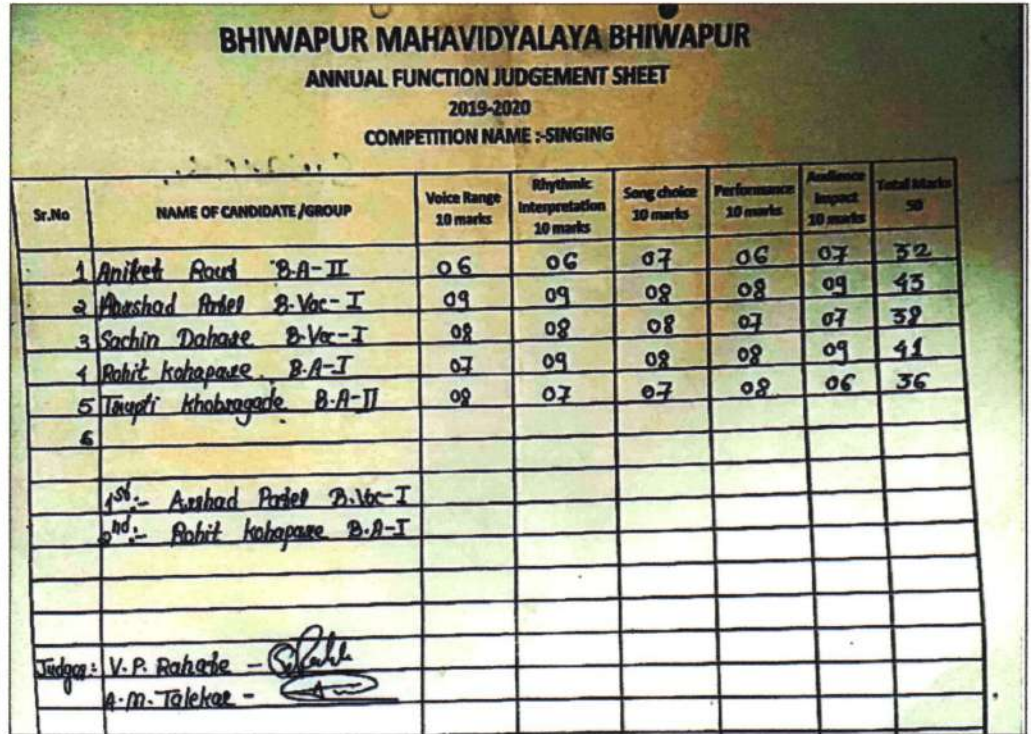 BHIWAPUR MAHAVIDYALAYA BHIWAPUR
ANNUAL FUNCTION JUDGEMENT SHEET
2019-2020
COMPETITION NAME :-SINGING
Sr.No NAME OF CANDIDATE /GROUP Voice Range 10 marks Rhythmic Interpretation 10 marks Song choice 10 marks Performance 10 marks Audience Impact 10 marks Total Marks 50
1 Aniket Raut B.A-II 06 06 07 06 07 32
2 Aarshad Patel B.Voc-I 09 09 08 08 09 43
3 Sachin Dahare B.Voc-I 08 08 08 07 07 38
4 Rohit Kohapare. B.A-I 07 09 08 08 09 41
5 Trupti Khobragade B.A-II 08 07 07 08 06 36
6
1st:- Arshad Patel B.Voc-I
2nd:- Rohit Kohapare B.A-I
Judges: V.P. Rahate -
A.M. Talekar -